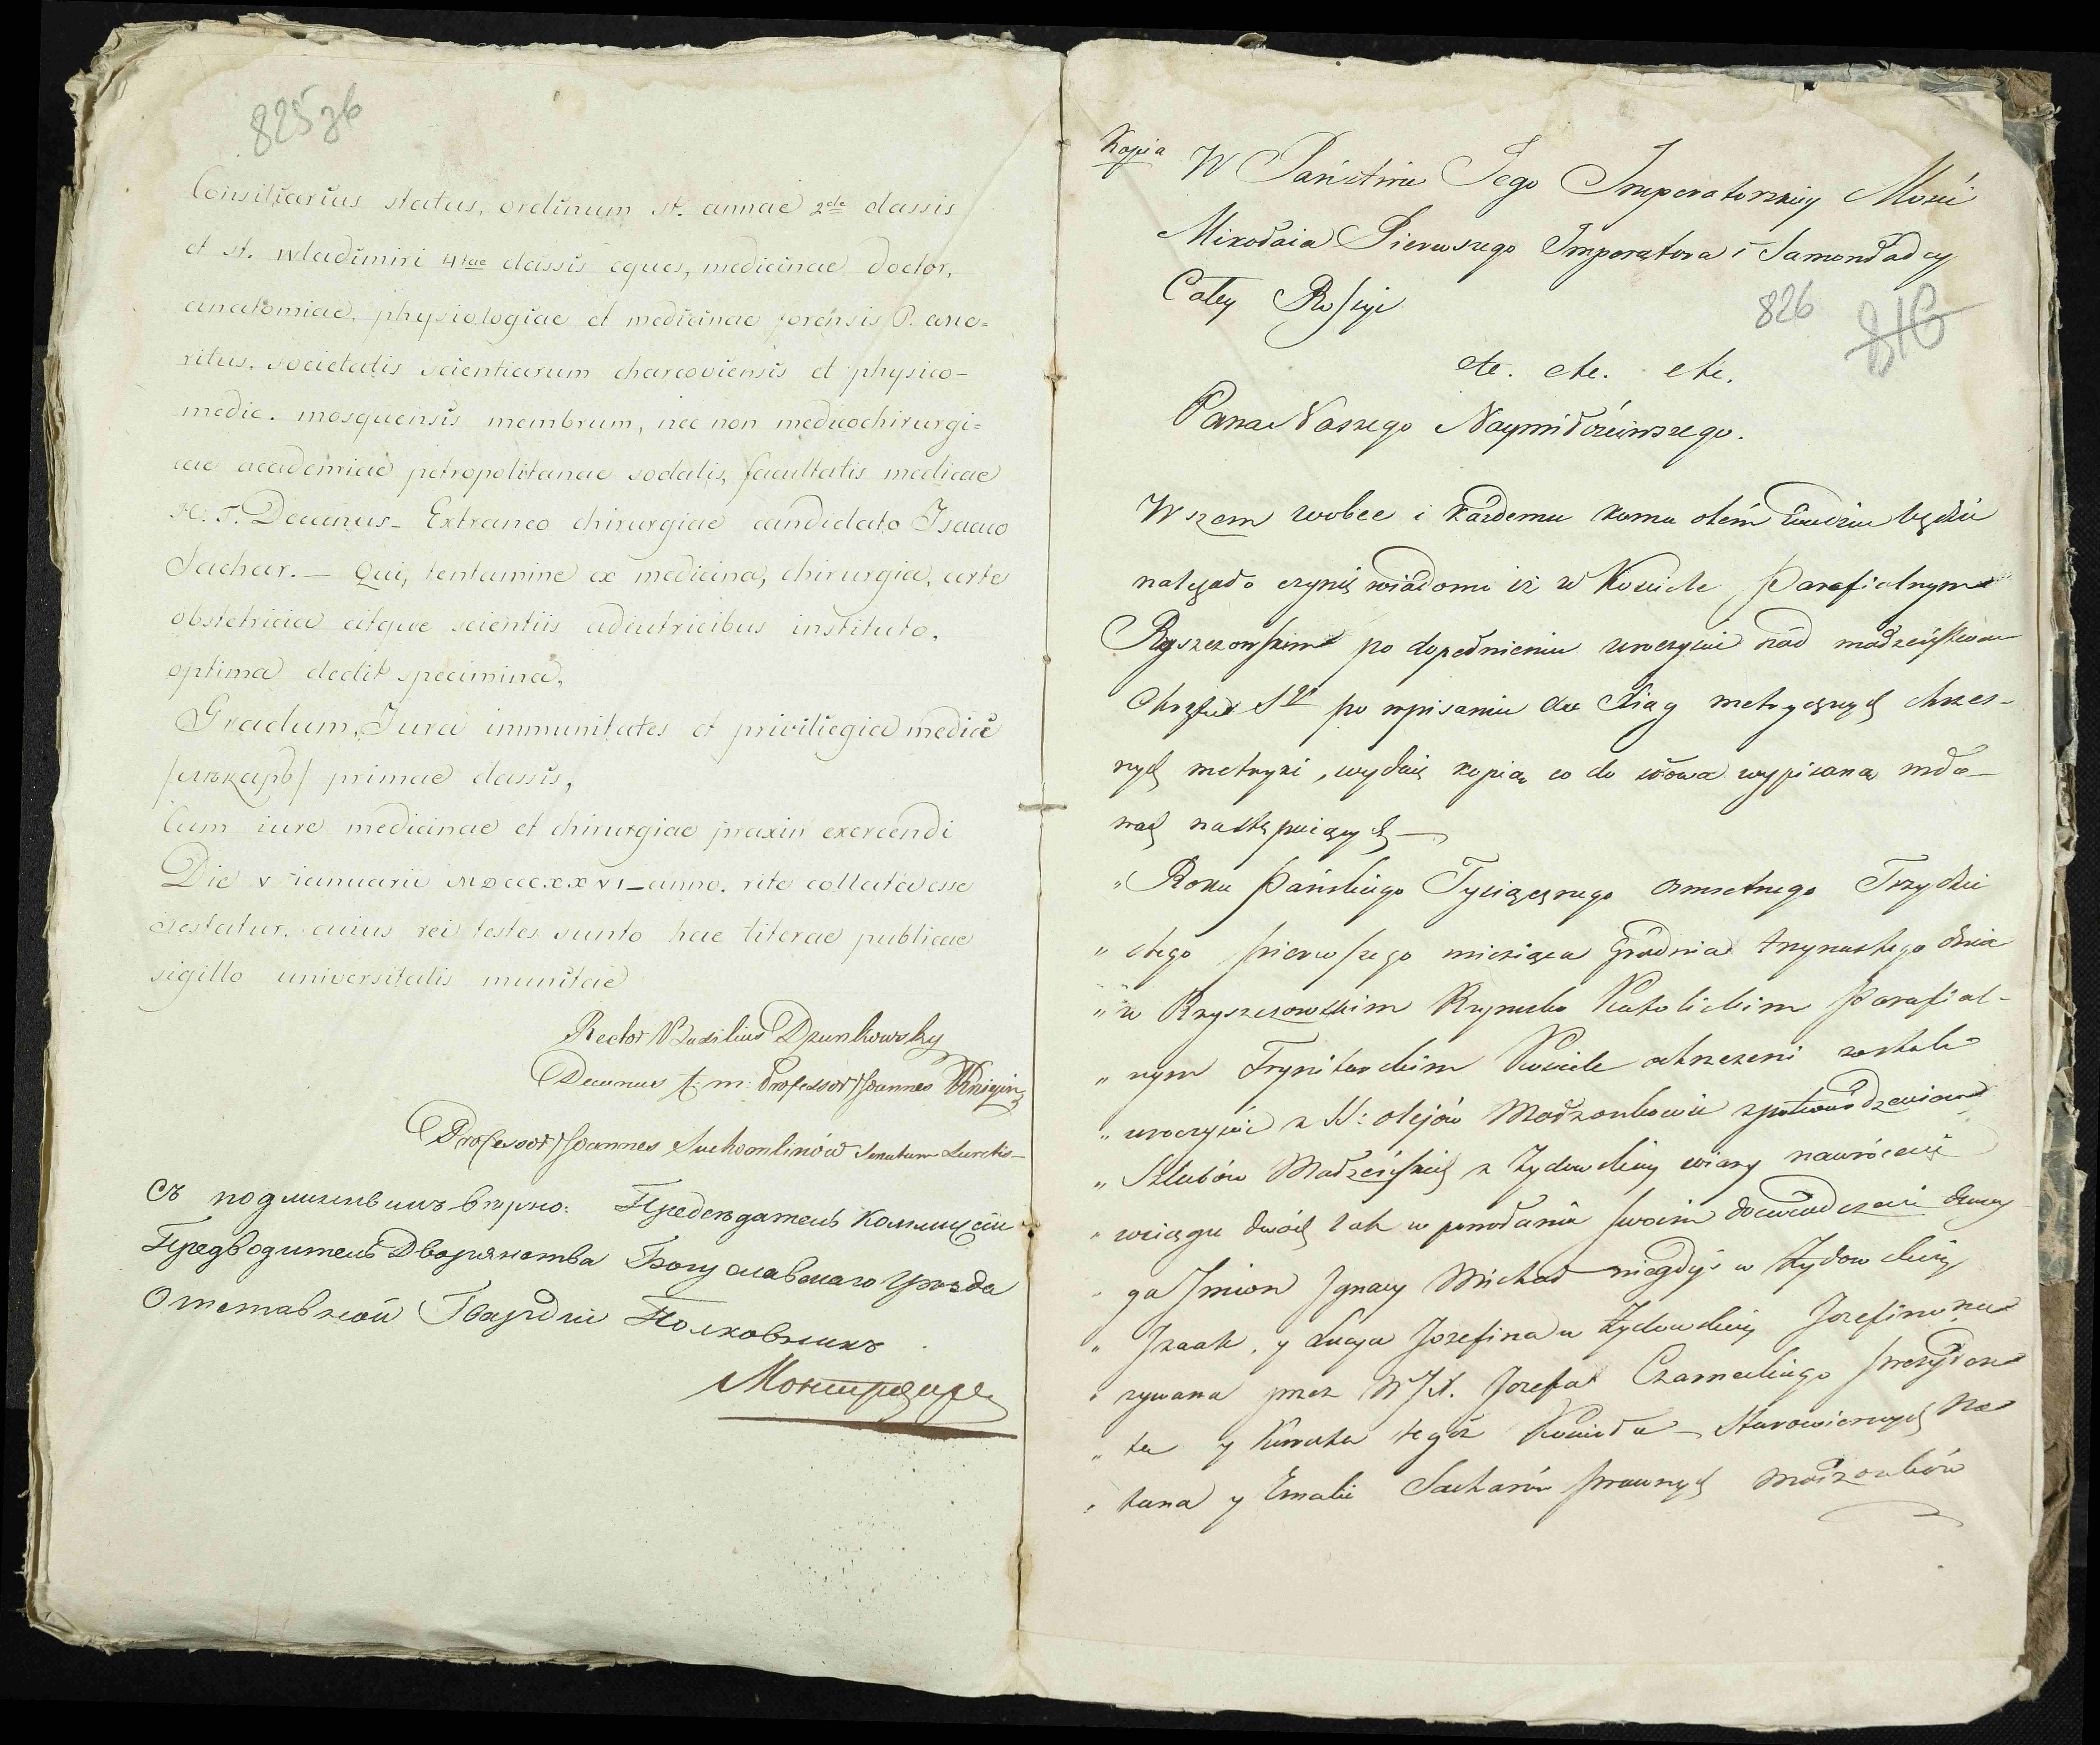 825 зв
Consiliarius status, ordinum st. annae 2dae classis
et st. wladimiri 4tae classis eques, medicinae doctor,
anatomiae, physiologiae et medicinae forensis P. eme=
ritus, societatis scientiarum charcoviensis et physico-
medic. mosquensis membrum, nec non medicochirurgi=
cae academiae petropolitanae sodalis, facultatis medicae
h. t. Decanus_ Extraneo chirurgiae candidato Isaaco
Sachar. — Qui, tentamine ex medicina, chirurgia, arte
obstetricia atque scientiis adiutricibus instituto,
optima dedit specimina,
Gradum, Jura immunitates et priviliegia medici
/лѣкарь/ primae classis,
Cum iure medicinae et chirurgiae praxin exercendi
Die v ianuarii MDCCCXXVI_anno. rite collata esse
testatur. cuius rei testes sunto hae literae publicae
sigillo universitatis munitae
Rector Basilius Dzunkowsky
Decanus f: m: Professor Joannes Kniegin
Professor Joannes Suchomlinów
Съ подлиннымъ вѣрно: Предсѣдатель Коммиссіи
Предводитель Дворянства Богуславскаго Уѣзда
Отставной Гвардіи Полковникъ
Kopia W Państwie Jego Imperatorskiey Mości
Mikołaia Pierwszego Imperatora i Samowładcy
Całey Rossyi
826 816
etc. etc. etc.
Pana Naszego Naymiłościwszego.
Wszem wobec i każdemu komu otém wiedzieć będzie
należało czynię wiadomo iż w Kościele Parafialnym
po dopełnieniu uroczyście nad małżeństwem
Chrztu St po wpisaniu do Xiąg metrycznych chrzes-
nych metryki, wydaię kopią co do słowa wypisaną w sło-
wach następuiących —
„ Roku Pańskiego Tysiącznego osmsetnego Trzydzie
„ stego pierwszego miesiąca Grudnia trzynastego dnia
„ w Rzyszczowskim Rzymsko Katolickim Parafial-
„ nym Trynitarskim Kościele ochrzczeni zostali
„ uroczyście z SS: olejów Małżonkowie z potwierdzeniem
„ Szlubów Małżeńskich z Żydowskiey wiary nawróceni
„ wciągu dwóch lat w powołaniu swoim doświadczeni dwoy
„ ga Imion Ignacy Michał niegdyś w Żydowskiey
„ Izaak, y Łucya Jozefina w Żydowskiey Jozefiną na
„ zywana przez WJX. Jozefa Czarneckiego prezyden
„ ta y Kurata tegoż Kościoła — Starowiernych Na
„ tana y Emalii Sacharów prawnych Małżonków